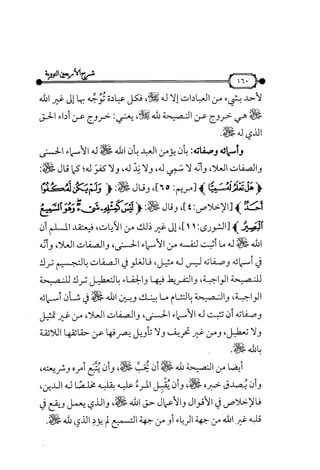 شرح الأربعين النووية
١٦٠
لأحد بشيء من العبادات إلا له ﷻ، فكل عبادة تُوُجِّه بها إلى غير الله
ﷻ هي خروج عن النصيحة لله ﷻ، يعني: خروج عن أداء الحق
الذي له ﷻ.
وأسمائه وصفاته: بأن يؤمن العبد بأن الله ﷻ له الأسماء الحسنى
والصفات العلا، وأنّه لا سَمِيَّ له، ولا نِدَّ له، ولا كفوَ له؛ كما قال ﷻ:
﴿هَلْ تَعْلَمُ لَهُ سَمِيًّا﴾ [مريم: ٦٥]، وقال ﷻ: ﴿وَلَمْ يَكُن لَّهُ كُفُوًا
أَحَدٌ﴾ [الإخلاص: ٤]، وقال ﷻ: ﴿لَيْسَ كَمِثْلِهِ شَيْءٌ وَهُوَ السَّمِيعُ
الْبَصِيرُ﴾ [الشورى: ١١]، إلى غير ذلك من الآيات، فيعتقد المسلم أن
الله ﷻ له ما أثبت لنفسه من الأسماء الحسنى، والصفات العلا، وأنّه
في أسمائه وصفاته ليس له مثيل، فالغلو في الصفات بالتجسيم ترك
للنصيحة الواجبة، والتفريط فيها والجفاء بالتعطيل ترك للنصيحة
الواجبة، والنصيحة بالتئام ما بينك وبين الله ﷻ في شأن أسمائه
وصفاته أن تثبت له الأسماء الحسنى، والصفات العلا، من غير تمثيل
ولا تعطيل، ومن غير تحريف ولا تأويل يصرفها عن حقائقها اللائقة
بالله ﷻ.
أيضا من النصيحة لله ﷻ أن يُحَبَّ ﷻ، وأن يُتَّبع أمره وشريعته،
وأن يُصدق خبره ﷻ، وأن يُقْبِل المرءُ عليه بقلبه مخلصًا له الدين،
فالإخلاص في الأقوال والأعمال حق الله ﷻ، والذي يعمل ويقع في
قلبه غير الله من جهة الرياء أو من جهة التسميع لم يؤد الذي لله ﷻ.